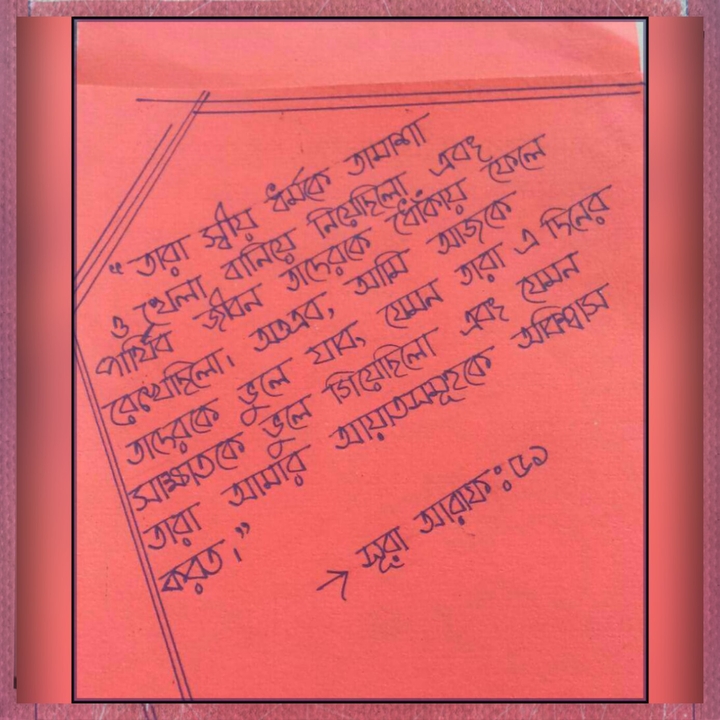 “ তারা স্বীয় ধর্মকে তামাশা
ও খেলা বানিয়ে নিয়েছিলো এবং
পার্থিব জীবন তাদেরকে ধোঁকায় ফেলে
রেখেছিলো। অতএব, আমি আজকে
তাদেরকে ভুলে যাব, যেমন তারা এ দিনের
সাক্ষাতকে ভুলে গিয়েছিলো এবং যেমন
তারা আমার আয়াতসমূহকে অবিশ্বাস
করত।”
→ সূরা আরাফ : ৫১